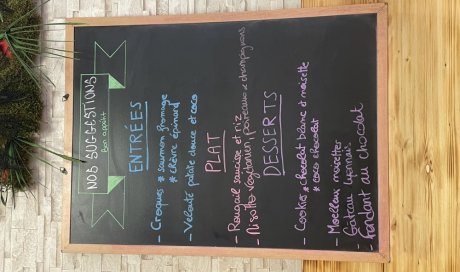 NOS SUGGESTIONS
Bon appétit
ENTRÉES
- Croques * saumon fromage
* chèvre épinard
- Velouté patate douce et coco
PLAT
- Rougail saucisse et riz
- Risotto végétarien, poireaux & champignons
DESSERTS
- Cookies * chocolat blanc et noisette
* coco chocolat
- Moelleux noisettes
- Gateau Lyonnais
- Fondant au chocolat